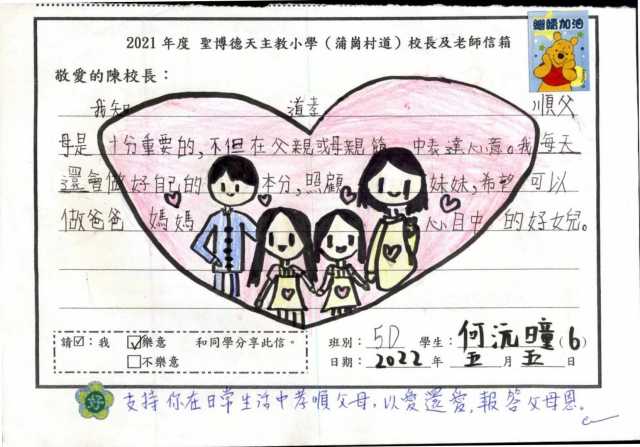 2021 年度 聖博德天主教小學(蒲崗村道)校長及老師信箱
繼續加油
敬愛的陳校長:
我知 道孝 順父
母是 十分重要的,不但在父親或母親節 中表達心意。我每天
還會做好自己的 本分,照顧 妹妹,希望 可以
做爸爸 媽媽 心目中 的好女兒。
請☑:我 ☑樂意 和同學分享此信。
□不樂意
班別: 5D 學生: 何沅曈 (6)
日期: 2022 年 五 月 五 日
好 支持你在日常生活中孝順父母,以愛還愛,報答父母恩。